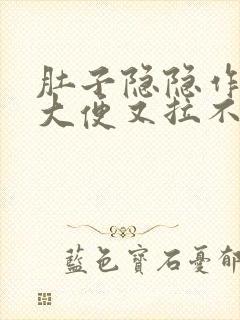 肚子隐隐作
大便又拉不
藍色寶石憂郁